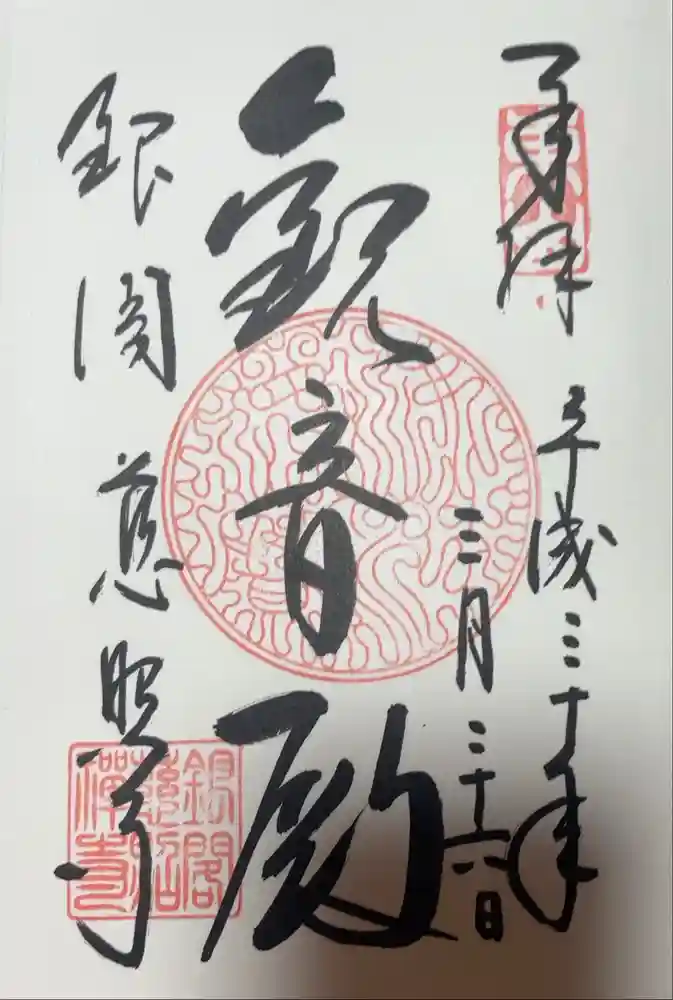 奉拝
平成三十年
三月二十六日
觀音殿
銀閣慈照寺
銀閣
慈照
禅寺